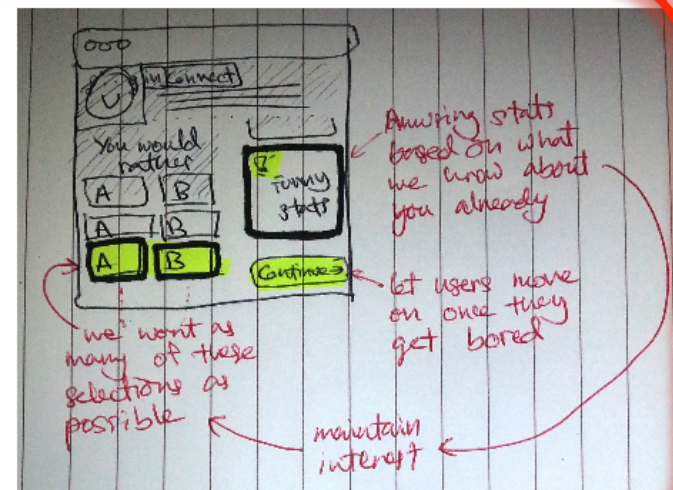 in Connect
You would
rather
A B
A B
A B
Funny
stats
Continue →
Amusing stats
based on what
we know about
you already
let users move
on once they
get bored
we want as
many of these
selections as
possible
maintain
interest